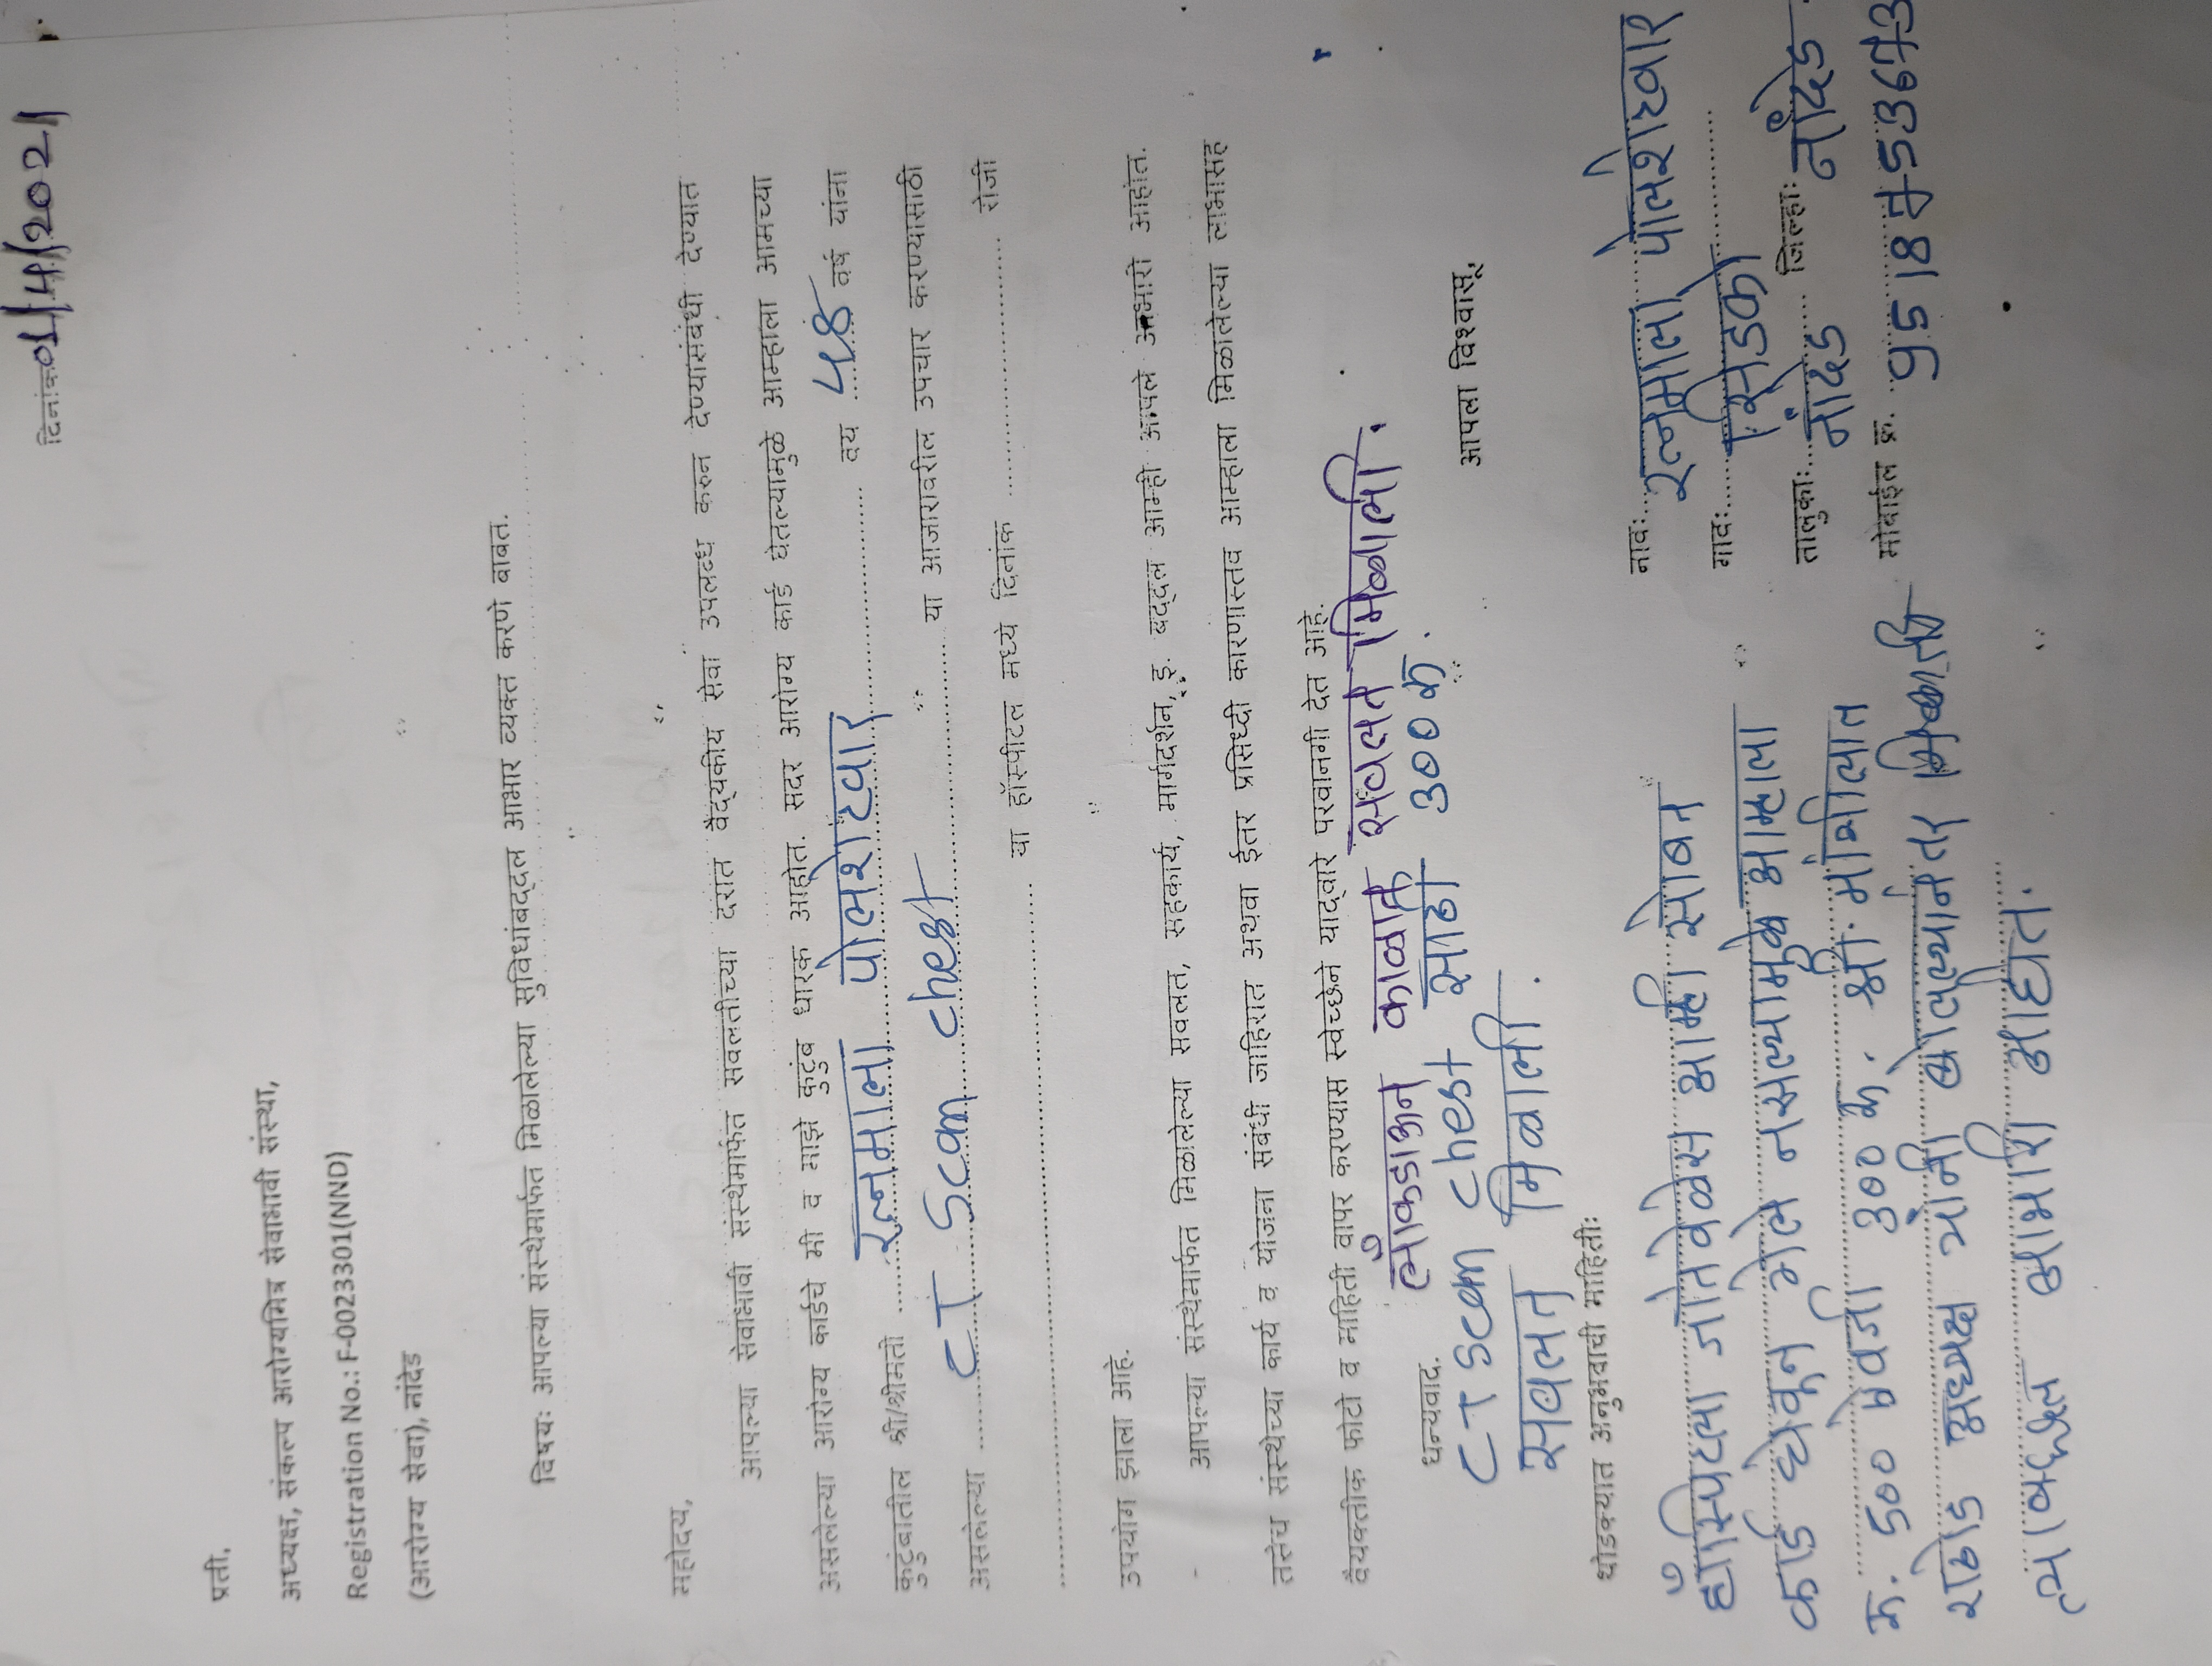 दिनांक 01/4/2021
प्रती,
अध्यक्ष, संकल्प आरोग्यमित्र सेवाभावी संस्था,
Registration No.: F-0023301(NND)
(आरोग्य सेवा), नांदेड
विषयः आपल्या संस्थेमार्फत मिळालेल्या सुविधांबद्दल आभार व्यक्त करणे बाबत.
महोदय,
आपल्या सेवाभावी संस्थेमार्फत सवलतीच्या दरात वैद्यकीय सेवा उपलब्ध करुन देण्यासंबंधी देण्यात
असलेल्या आरोग्य कार्डचे मी व माझे कुटुंब धारक आहोत. सदर आरोग्य कार्ड घेतल्यामुळे आम्हाला आमच्या
कुटुंबातील श्री/श्रीमती रत्नमाला पोलशेटवार वय 48 वर्ष यांना
असलेल्या CT Scan chest या आजारावरील उपचार करण्यासाठी
या हॉस्पीटल मध्ये दिनांक रोजी
उपयोग झाला आहे.
आपल्या संस्थेमार्फत मिळालेल्या सवलत, सहकार्य, मार्गदर्शन, इ. बद्दल आम्ही आपले आभारी आहोत.
तसेच संस्थेच्या कार्य व योजना संबंधी जाहिरात अथवा ईतर प्रसिध्दी कारणास्तव आम्हाला मिळालेल्या लाभासह
वैयक्तीक फोटो व माहिती वापर करण्यास स्वेच्छेने याद्वारे परवानगी देत आहे.
धन्यवाद. लॉकडाऊन काळात सवलत मिळाली.
CT Scan Chest साठी 300 रू.
सवलत मिळाली.
आपला विश्वासू,
थोडक्यात अनुभवाची माहितीः
हॉस्पिटला जातेवेळेस आम्ही सोबत
कार्ड घेवून गेले नसल्यामुळे आम्हाला
रू. 500 ऐवजी 300 रू. श्री.
राठोड अध्यक्ष यांनी बोलल्यानंतर
त्याबद्दल आभारी आहोत.
नावः रत्नमाला पोलशेटवार
गावः सिडको
तालुकाः नांदेड जिल्हाः नांदेड
मोबाईल क्र.